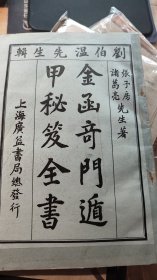 劉伯温先生輯
張子房
諸葛亮先生著
金函奇門遁
甲秘笈全書
上海廣益書局總發行